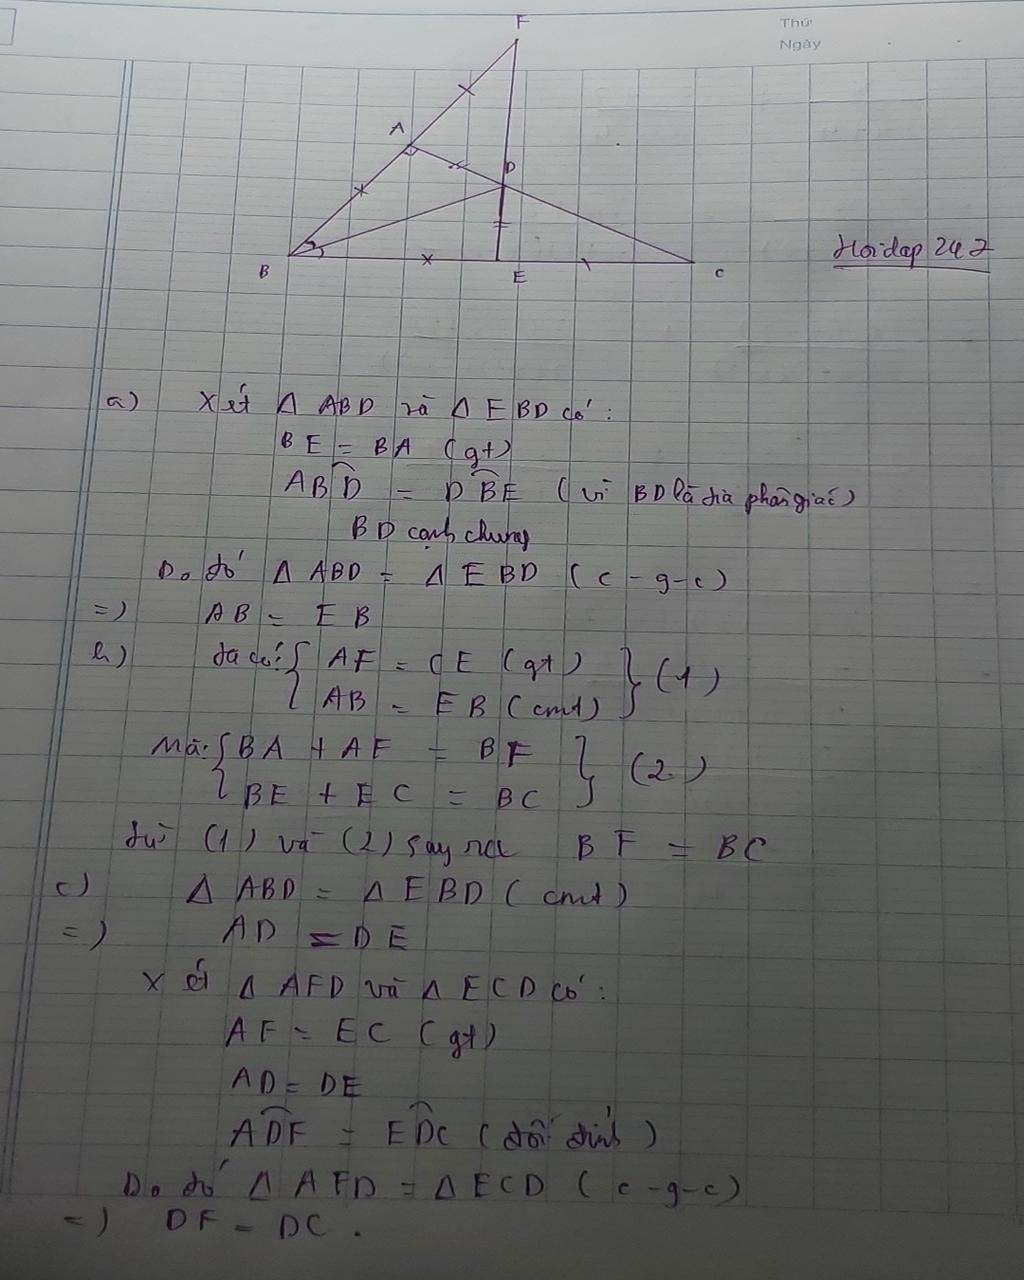 Thứ
Ngày
F
A
D
B
E
C
Hoidap 247
a) Xét Δ ABD và Δ EBD có:
BE = BA (gt)
ABD̂ = DB̂E (vì BD là tia phân giác)
BD cạnh chung
Do đó Δ ABD = Δ EBD (c-g-c)
=) AB = EB
b) Ta có: { AF = CE (gt) } (1)
{ AB = EB (cmt)
Mà: { BA + AF = BF } (2)
{ BE + EC = BC
Từ (1) và (2) say ra BF = BC
c) Δ ABD = Δ EBD (cmt)
=) AD = DE
Xét Δ AFD và Δ ECD có:
AF = EC (gt)
AD = DE
AD̂F = ED̂C (đối đỉnh)
Do đó Δ AFD = Δ ECD (c-g-c)
=) DF = DC.